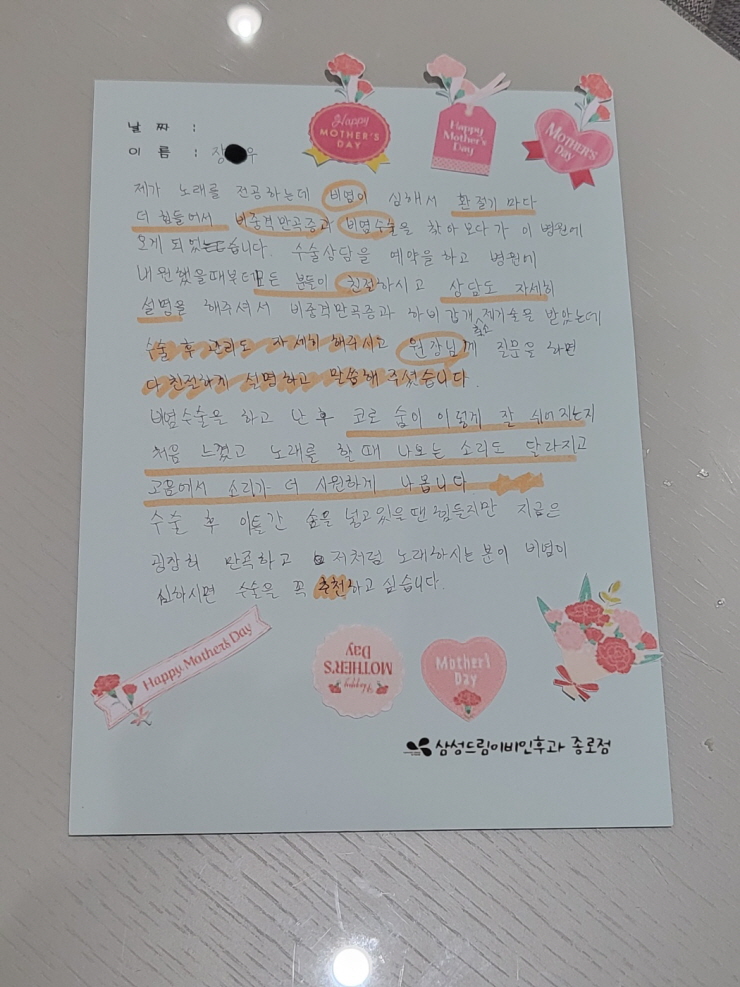 Happy
MOTHER'S
DAY
Happy
Mother's
Day
MOTHER'S
Day
날 짜 :
이 름 : 장 우
제가 노래를 전공하는데 비염이 심해서 환절기 마다
더 힘들어서 비중격만곡증과 비염수술을 찾아보다가 이 병원에
오게 되었습니다. 수술상담을 예약을 하고 병원에
내원했을때부터 모든 분들이 친절하시고 상담도 자세히
설명을 해주셔서 비중격만곡증과 하비갑개 축소 제거술을 받았는데
수술 후 관리도 자세히 해주시고 원장님께 질문을 하면
다 친절하게 설명하고 말씀해 주셨습니다.
비염수술을 하고 난 후 코로 숨이 이렇게 잘 쉬어지는지
처음 느꼈고 노래를 할 때 나오는 소리도 달라지고
고음에서 소리가 더 시원하게 나옵니다
수술 후 이틀간 솜을 넣고있을땐 힘들지만 지금은
굉장히 만족하고 저처럼 노래하시는 분이 비염이
심하시면 수술을 꼭 추천하고 싶습니다.
Happy Mother's Day
Happy
MOTHER'S
Day
Mother's
Day
삼성드림이비인후과 종로점